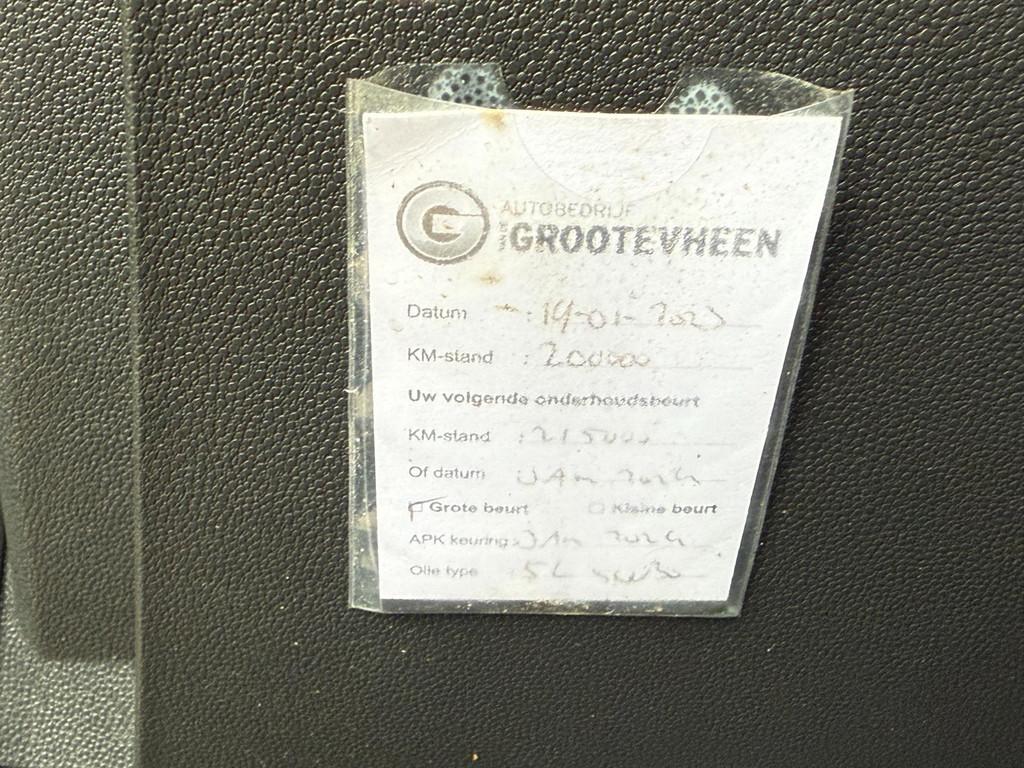 AUTOBEDRIJF
VAN DE GROOTEVHEEN
Datum : 19-01-2023
KM-stand : 200000
Uw volgende onderhoudsbeurt
KM-stand : 215000
Of datum Jan 2024
Grote beurt Kleine beurt
APK keuring: Jan 2024
Olie type : 5L 5W30